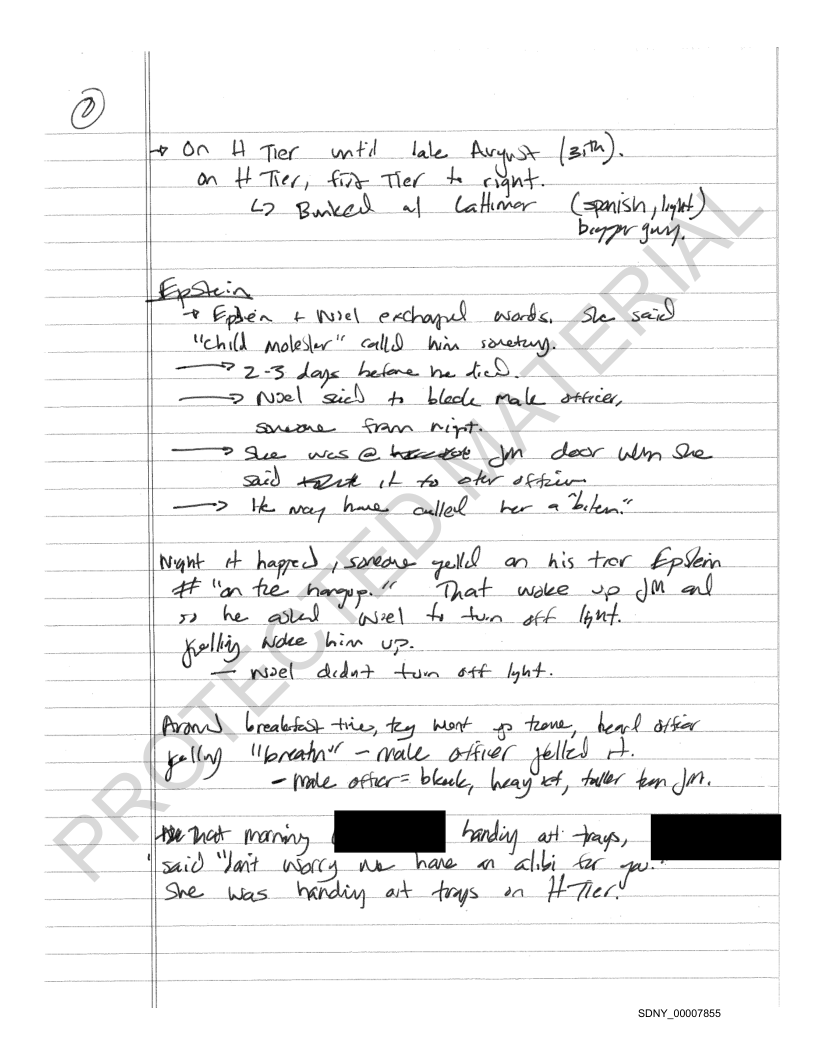 → On H Tier until late August (31th).
on H Tier, first Tier to right.
↳ Bunked w/ Lattimor (spanish, light)
bigger guy.
Epstein
→ Epstein + Noel exchanged words. She said
"child molester" called him something.
→ 2-3 days before he died.
→ Noel said to black male officer,
someone from night.
→ She was @ JM door when she
said it to other officer
→ He may have called her a "bitch."
Night it happed, someone yelled on his tier Epstein
# "on the hangup." That woke up JM and
so he asked Noel to turn off light.
Yelling woke him up.
— Noel didnt turn off light.
Around breakfast time, they went up there, heard officer
yelling "breath" - male officer yelled it.
- Male officer = black, heavy set, taller than JM.
That morning handing out trays,
said "don't worry we have an alibi for you."
She was handing out trays on H Tier.
PROTECTED MATERIAL
SDNY_00007855